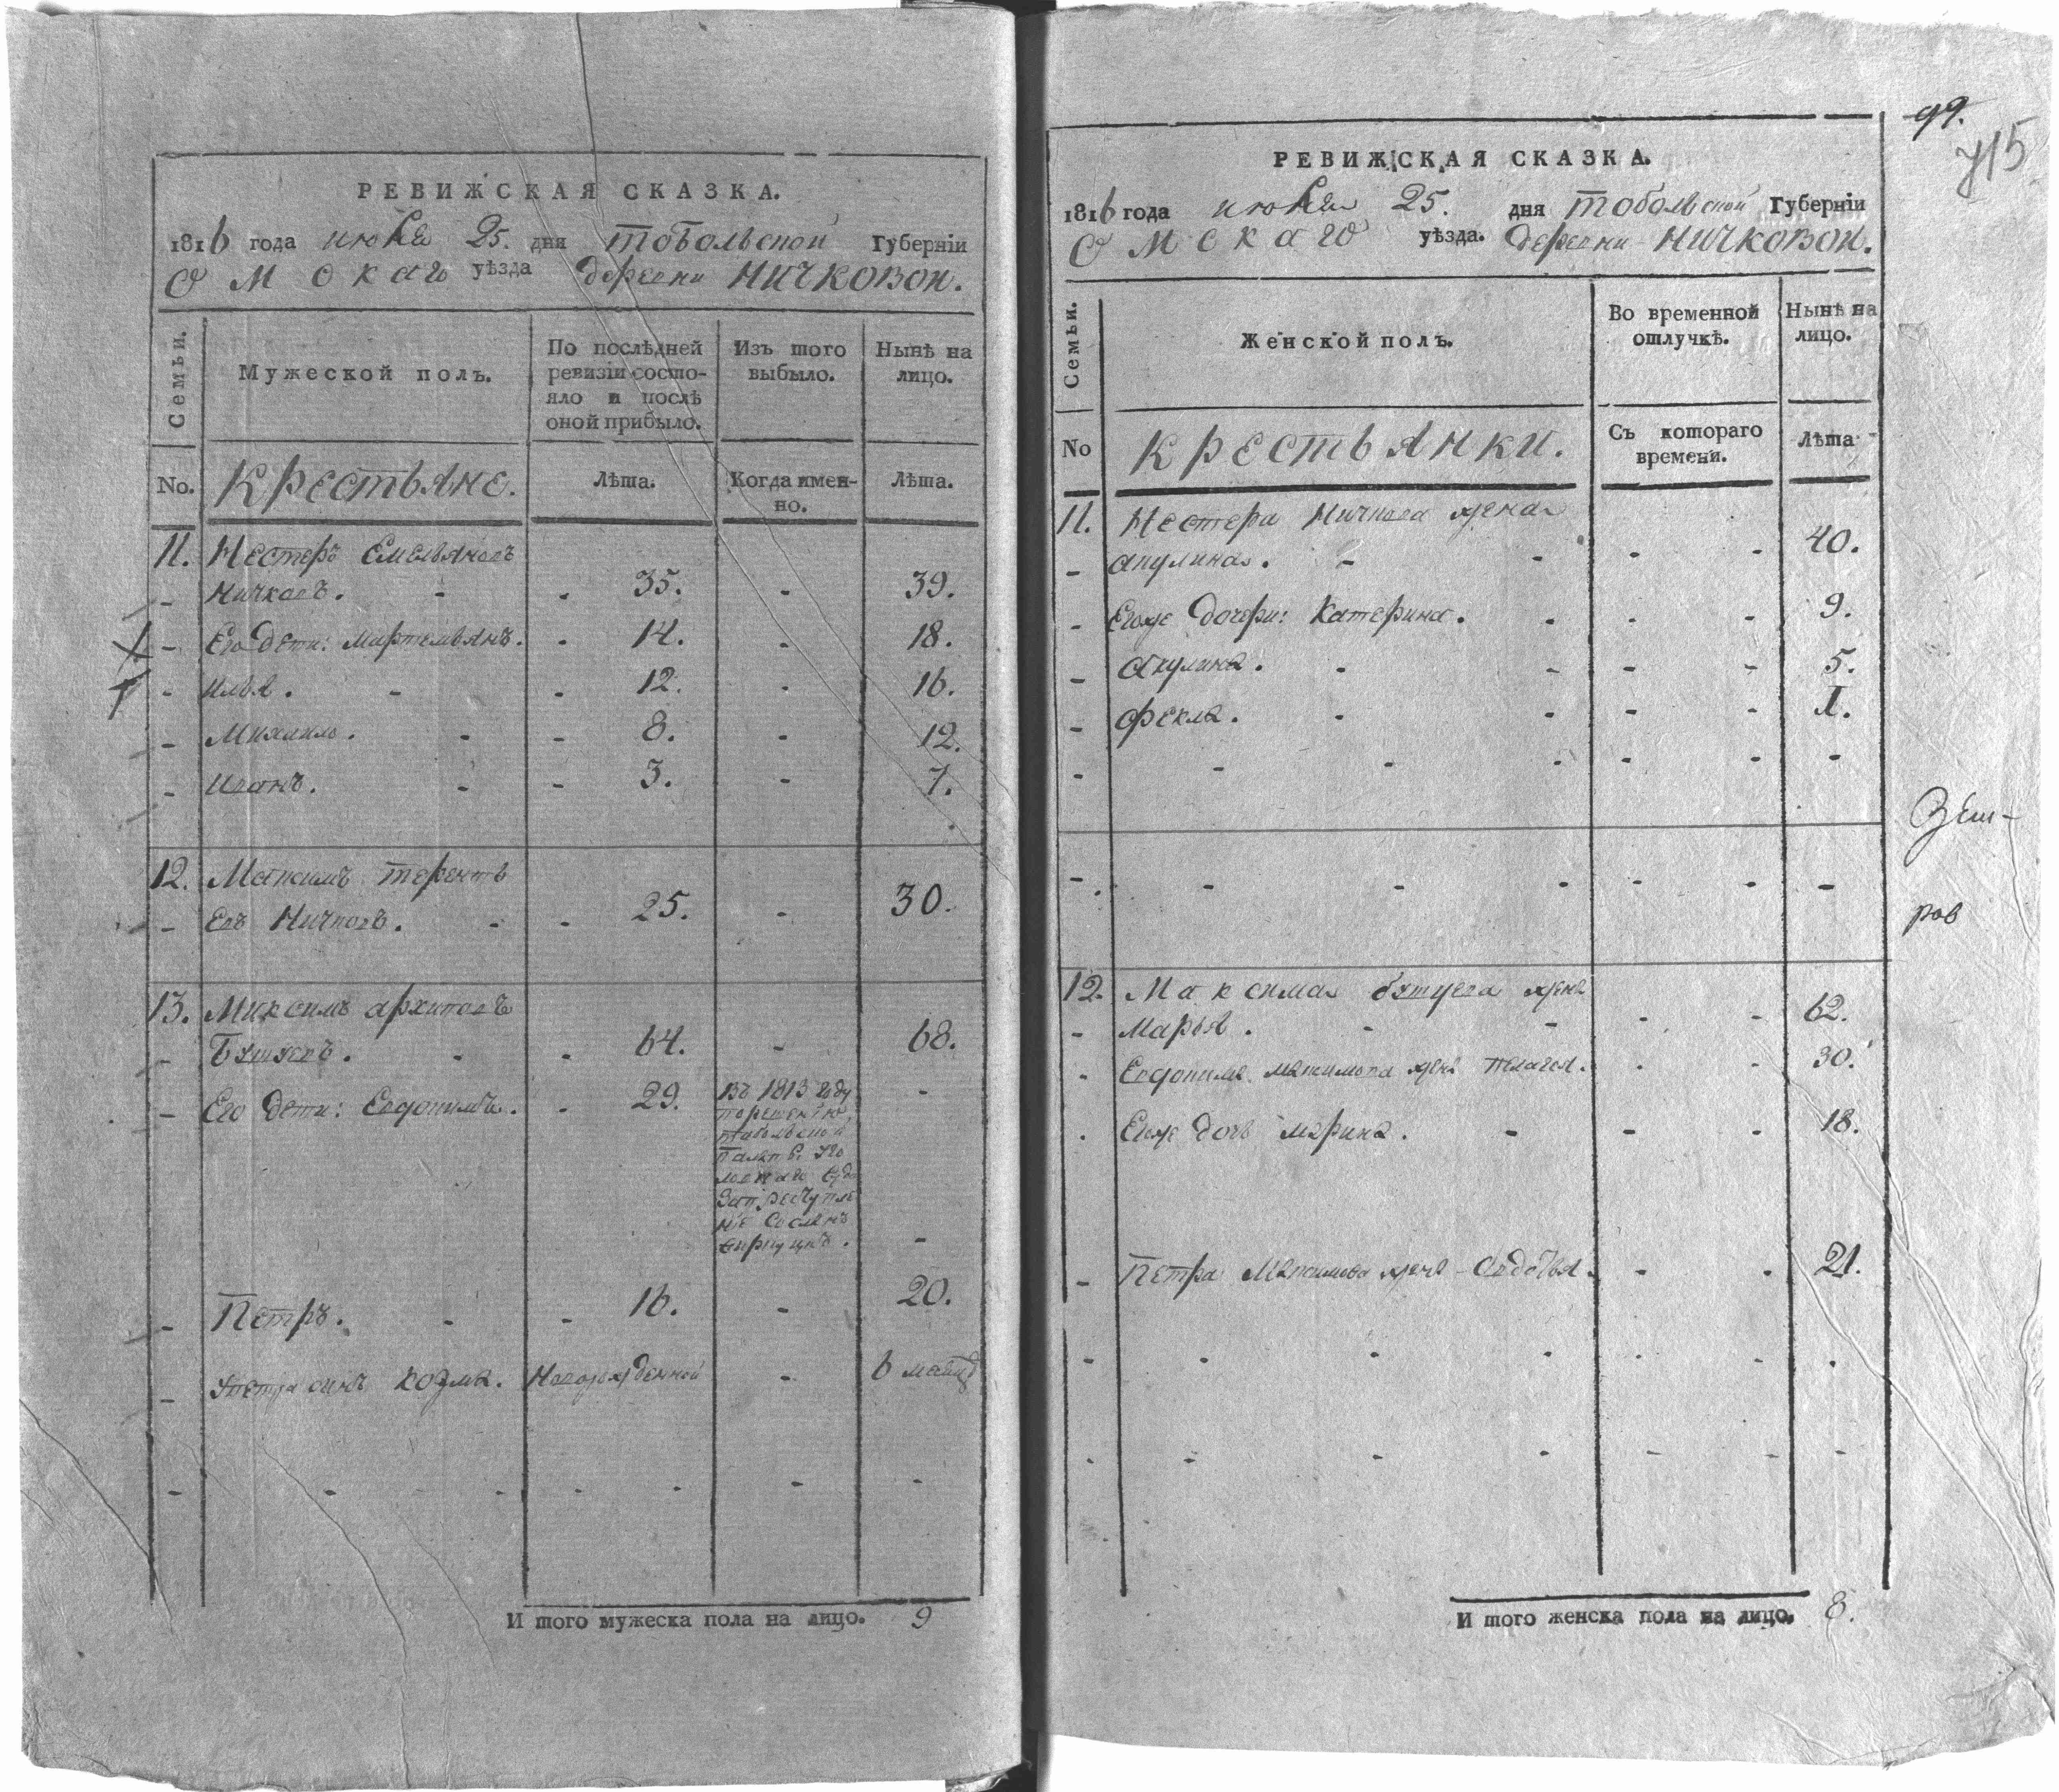 РЕВИЖСКАЯ СКАЗКА.
1816 года июня 25. дня тобольской Губерніи
Омскаго уѣзда деревни Ничковои.
Семьи.
Мужеской полъ.
По послѣдней
ревизіи состо-
яло и послѣ
оной прибыло.
Изъ того
выбыло.
Нынѣ на
лицо.
No.
Крестьяне.
Лѣта.
Когда имен-
но.
Лѣта.
11. Нестеръ Емельяновъ
Ничковъ. 35. 39.
Его дети: Мартемьянъ. 14. 18.
Илья. 12. 16.
Михаило. 8. 12.
Иванъ. 3. 7.
12. Максимъ терентъ
евъ Ничковъ. 25. 30.
13. Максимъ архиповъ
64. 68.
Его дети: Евдокимъ. 29. Въ 1813 году
по решению
тобольской
Палаты Уго
ловнаго Суда
За преступле
ніе Сосланъ
виркуцкъ.
Петръ. 16. 20.
У петра сынъ козма. Новорожденной 6 месяц
И того мужеска пола на лицо. 9
99.
715
РЕВИЖСКАЯ СКАЗКА.
1816 года июня 25. дня тобольской Губерніи
Омскаго уѣзда. деревни Ничковои.
Семьи.
Женской полъ.
Во временной
отлучкѣ.
Нынѣ на
лицо.
No
Крестьянки.
Съ котораго
времени.
Лѣта
11. Нестера Ничкова жена
акулина. 40.
Егоже дочери: Катерина. 9.
акулина. 5.
Фекла. 1.
12. Максима жена
Марья. 62.
Евдокима максимова жена пелагея. 30.
Егоже дочь марина. 18.
Петра Максимова жена Авдотья. 21.
И того женска пола на лицо. 8.
Зем-
ров